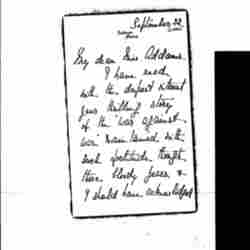 September 22
My dear Miss Addams
I have read
with the deepest interest
your thrilling story
of the war against
war maintained with
such fortitude through
three bloody years &
I should have acknowledged